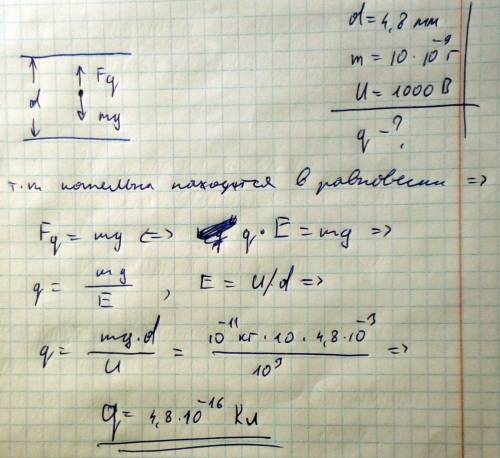 d = 4,8 мм
m = 10 · 10⁻⁹ г
U = 1000 В
q - ?
Fq
d
mg
т.к капелька находится в равновесии =>
Fq = mg <=> q · E = mg =>
q = mg / E , E = U/d =>
q = mg·d / U = 10⁻¹¹ кг · 10 · 4,8·10⁻³ / 10³ =>
q = 4,8·10⁻¹⁶ Кл